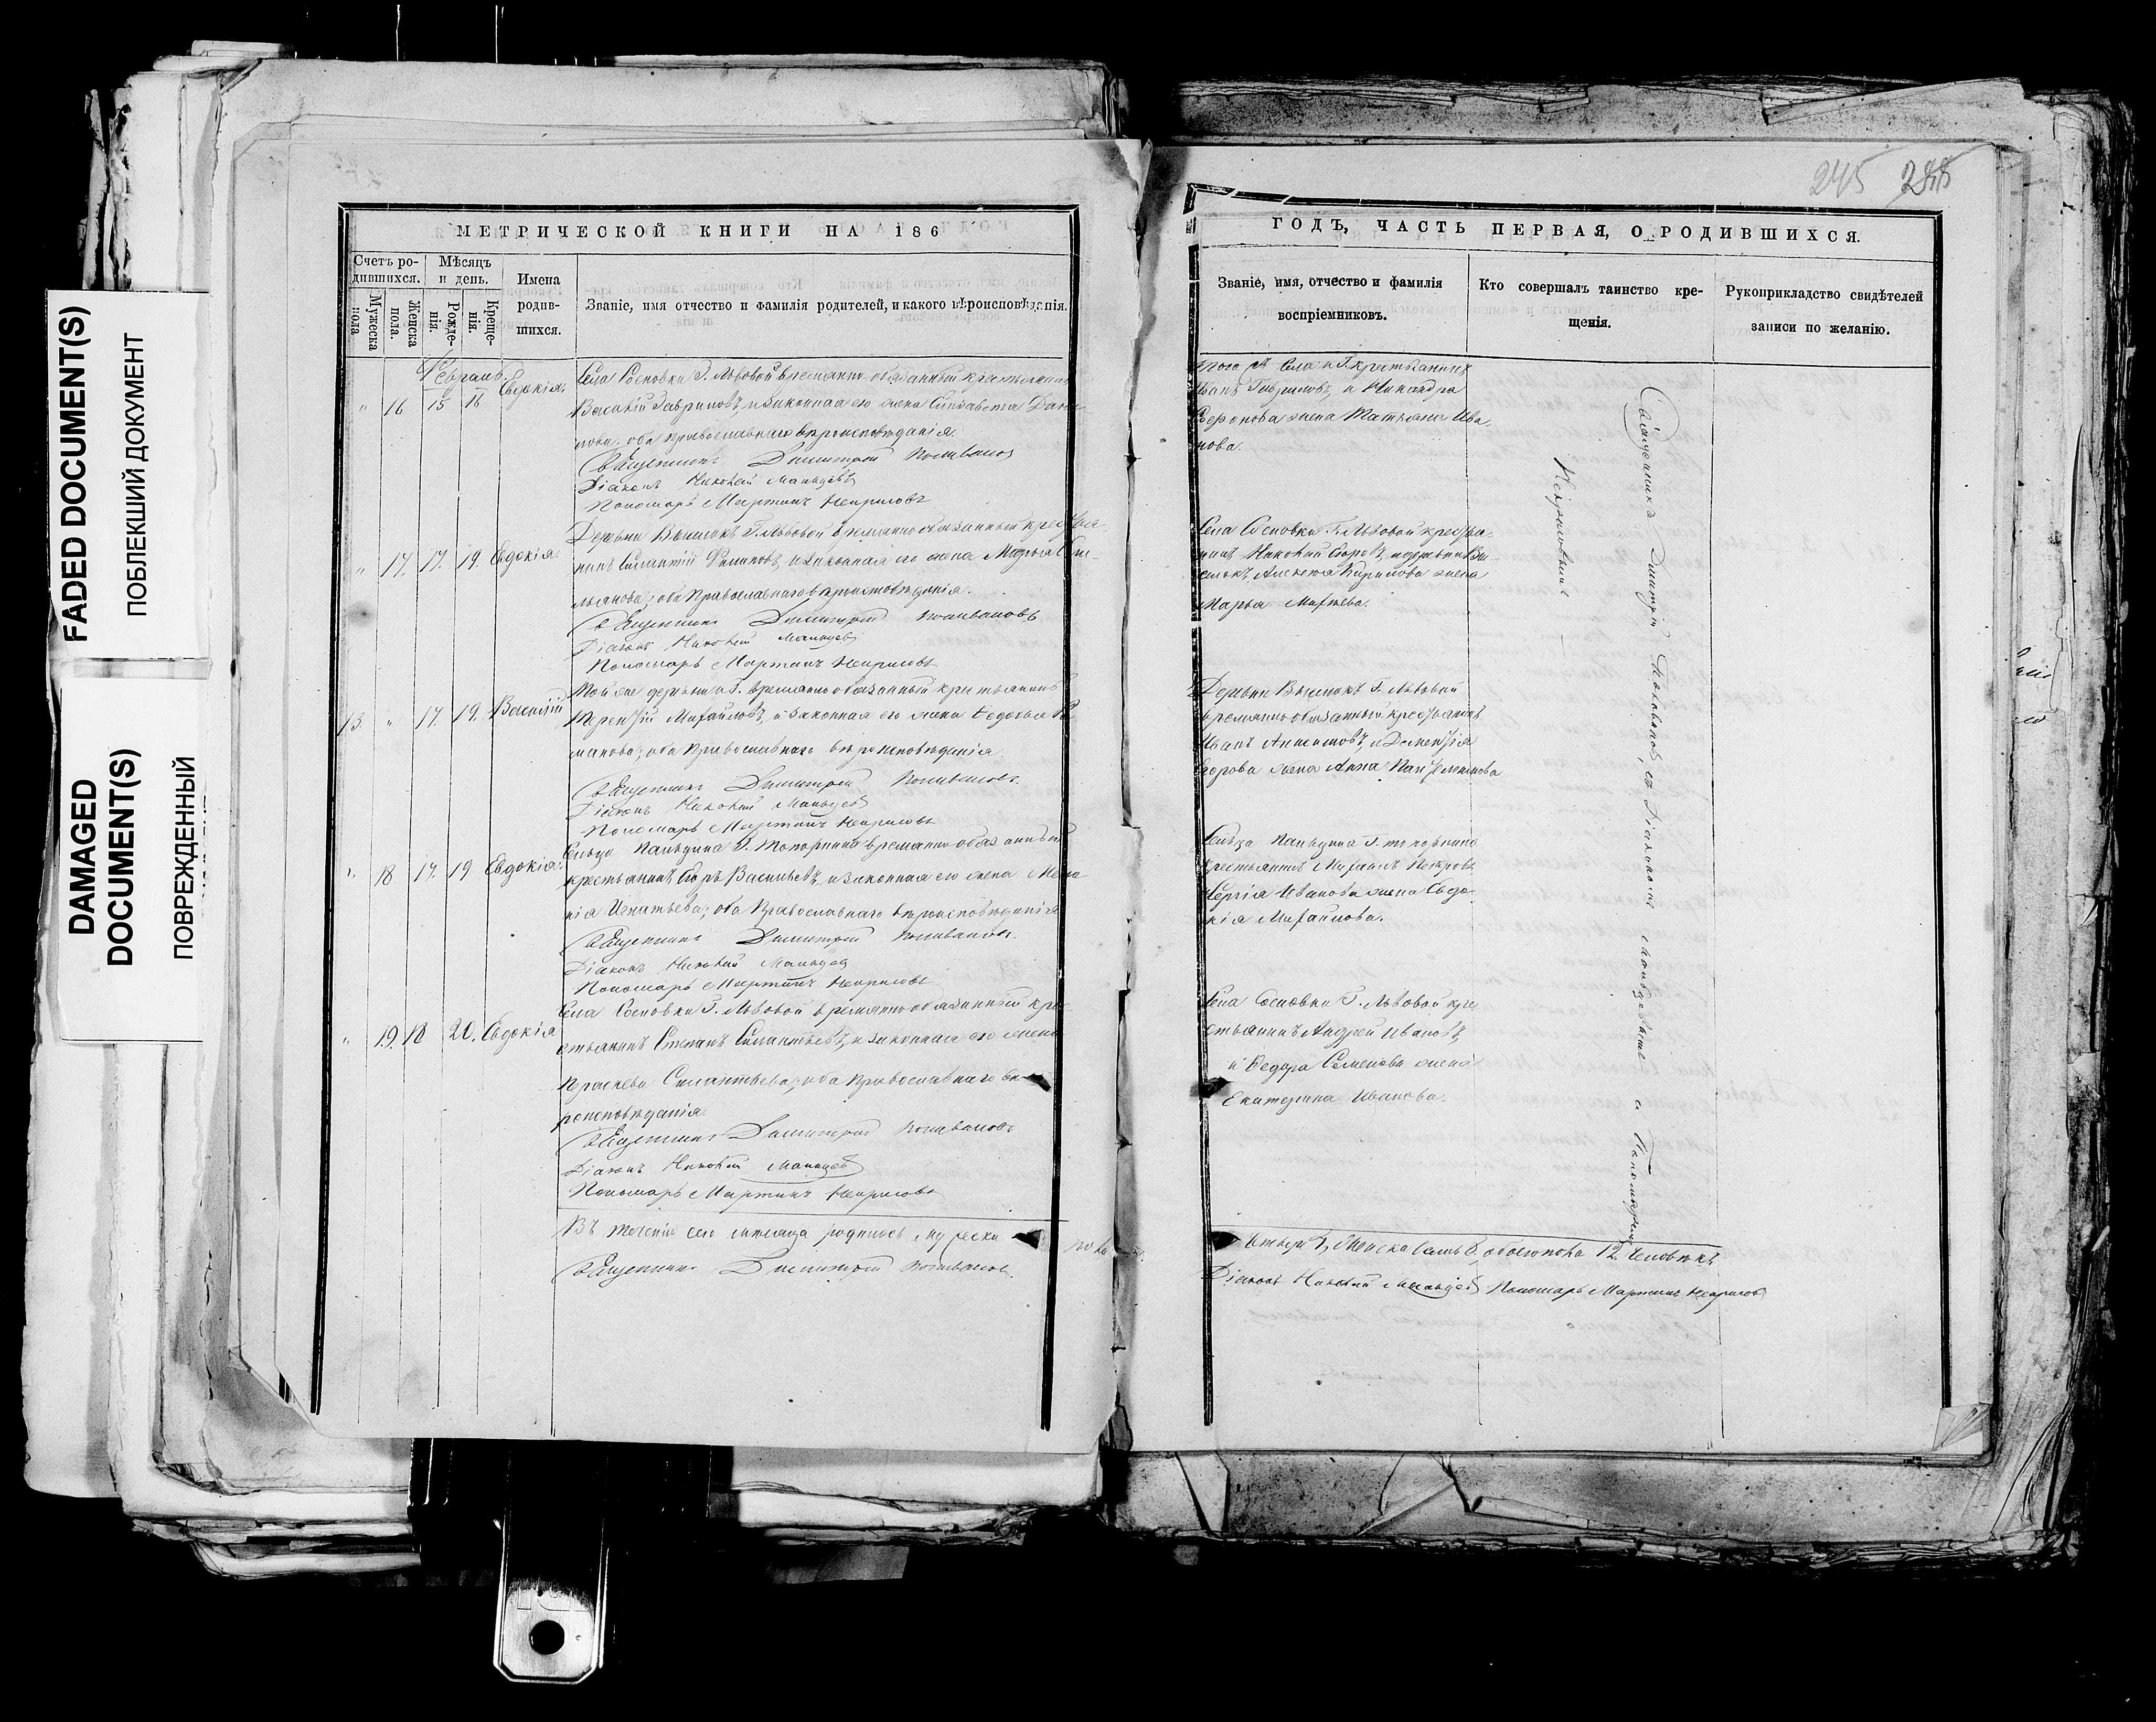 FADED DOCUMENT(S)
ПОБЛЕКШИЙ ДОКУМЕНТ
DAMAGED
DOCUMENT(S)
ПОВРЕЖДЕННЫЙ
МЕТРИЧЕСКОЙ КНИГИ НА 186
Счетъ ро-
дившихся.
Мужеска
пола
Женска
пола.
Мѣсяцъ
и день.
Рожде-
нія.
Креще-
нія.
Имена
родив-
шихся.
Званіе, имя отчество и фамилія родителей, и какого вѣроисповѣданія.
Февраль
" 16 15 16 Евдокія
Села Сосновки Г. Львовой временно обязанный крестьянинъ
Василій Гавриловъ, и законная его жена Елизавета Дани-
лова, оба православнаго вѣроисповѣданія.
Священникъ Димитрій Поливановъ
Діаконъ Николай Мальцевъ
Пономарь Мартинъ Некрисовъ
" 17. 17. 19. Евдокія
Деревни Выселокъ Г. Львовой временно обязанный крестья-
нинъ законная его жена Марья
оба Православнаго вѣроисповѣданія.
Священникъ Димитрій Поливановъ
Діаконъ Николай Мальцевъ
Пономарь Мартинъ Некрисовъ
13 " 17. 19. Василій
Той же деревни и Г. временно обязанный крестьянинъ
Терентій Михайловъ, и законная его жена Федосья Ро-
манова; оба Православнаго вѣроисповѣданія.
Священникъ Димитрій Поливановъ.
Діаконъ Николай Мальцевъ
Пономарь Мартинъ Некрисовъ
" 18 17. 19 Евдокія
Сельца Пальцина Г. Топорнина временно обязанный
крестьянинъ Егоръ Васильевъ, и законная его жена Мела-
нія Игнатьева; оба Православнаго вѣроисповѣданія
Священникъ Димитрій Поливановъ.
Діаконъ Николай Мальцевъ
Пономарь Мартинъ Некрисовъ
" 19. 18 20. Евдокія
Села Сосновки Г. Львовой временно обязанный кре-
стьянинъ Степанъ Силантьевъ, и законная его жена
оба Православнаго вѣ-
роисповѣданія.
Священникъ Димитрій Поливановъ
Діаконъ Николай Мальцевъ
Пономарь Мартинъ Некрисовъ
Въ теченіи сего мѣсяца родилось Мужеска пола
Священникъ Димитрій Поливановъ.
245 288
ГОДЪ, ЧАСТЬ ПЕРВАЯ, О РОДИВШИХСЯ.
Званіе, имя, отчество и фамилія
воспріемниковъ.
Кто совершалъ таинство кре-
щенія.
Рукоприкладство свидѣтелей
записи по желанію.
Того жъ Села и Г. крестьянинъ
Иванъ Гавриловъ, и Никандра
Софонова жена Татьяна Ива-
нова.
Села Сосновки Г. Львовой крестья-
нинъ Николай Егоровъ, и деревни Вы-
селокъ Алексея Кирилова жена
Марья Матвева.
Деревни Выселокъ Г. Львовой
временно обязанный крестьянинъ
Иванъ Анисимовъ, и Дементія
Егорова жена Анна Пантелеимова
Сельца Пальцина Г. Топорнина
крестьянинъ Михаилъ Петровъ
Сергія Иванова жена Евдо-
кія Михайлова.
Села Сосновки Г. Львовой кре-
стьянинъ Андрей Ивановъ,
и Федора Семенова жена
Екатерина Иванова.
Священникъ Димитрій Поливановъ, съ Діакономъ Мальцевымъ и Пономаремъ
Некрисовымъ
Четыре, Женска 8, обоегопола 12 человѣкъ
Діаконъ Николай Мальцевъ Пономарь Мартинъ Некрисовъ